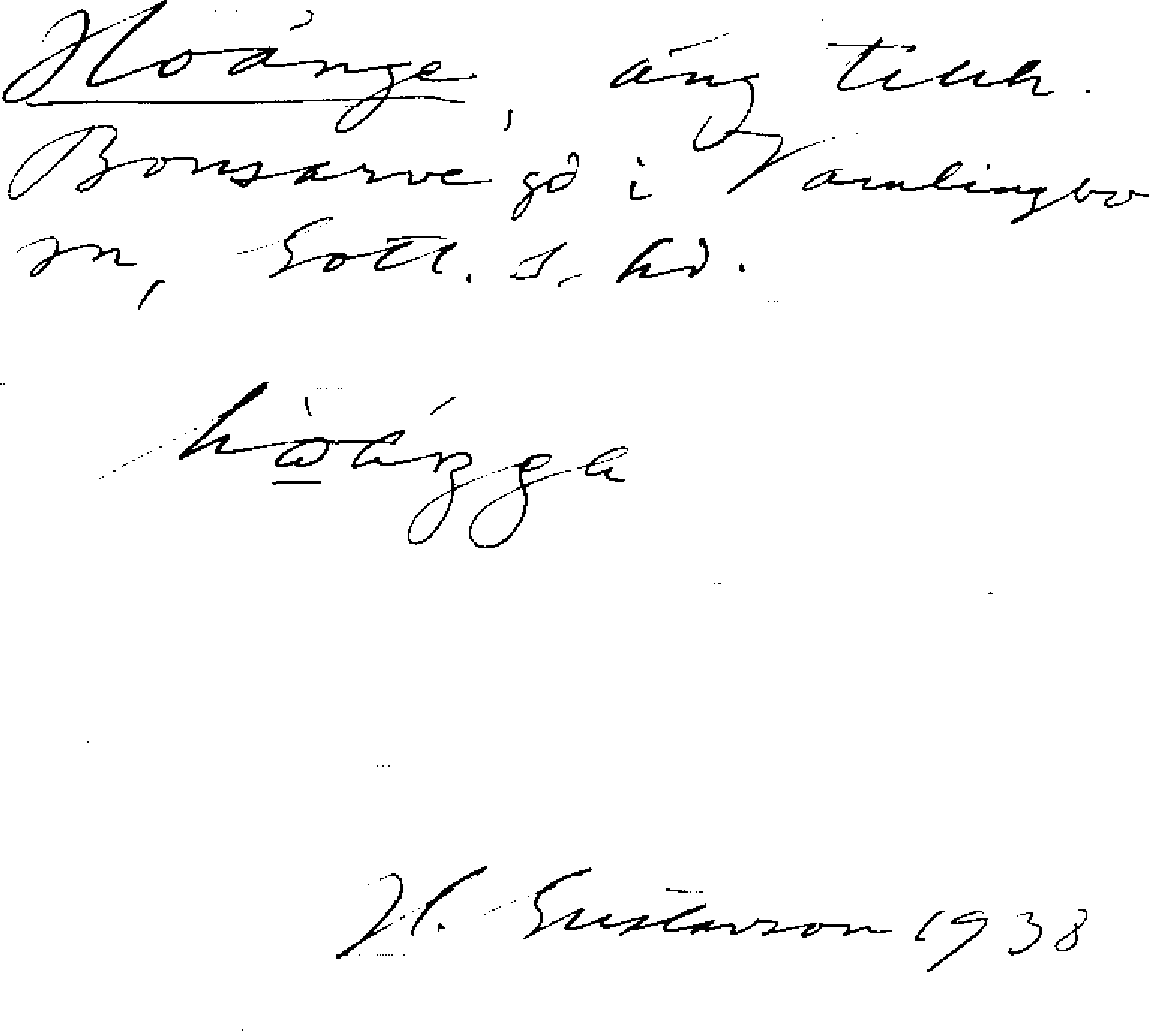 Hoänge, äng tillh.
Bonsarve gd i Vamlingbo
sn, Gotl. s. hd.
H. Gustavson 1938